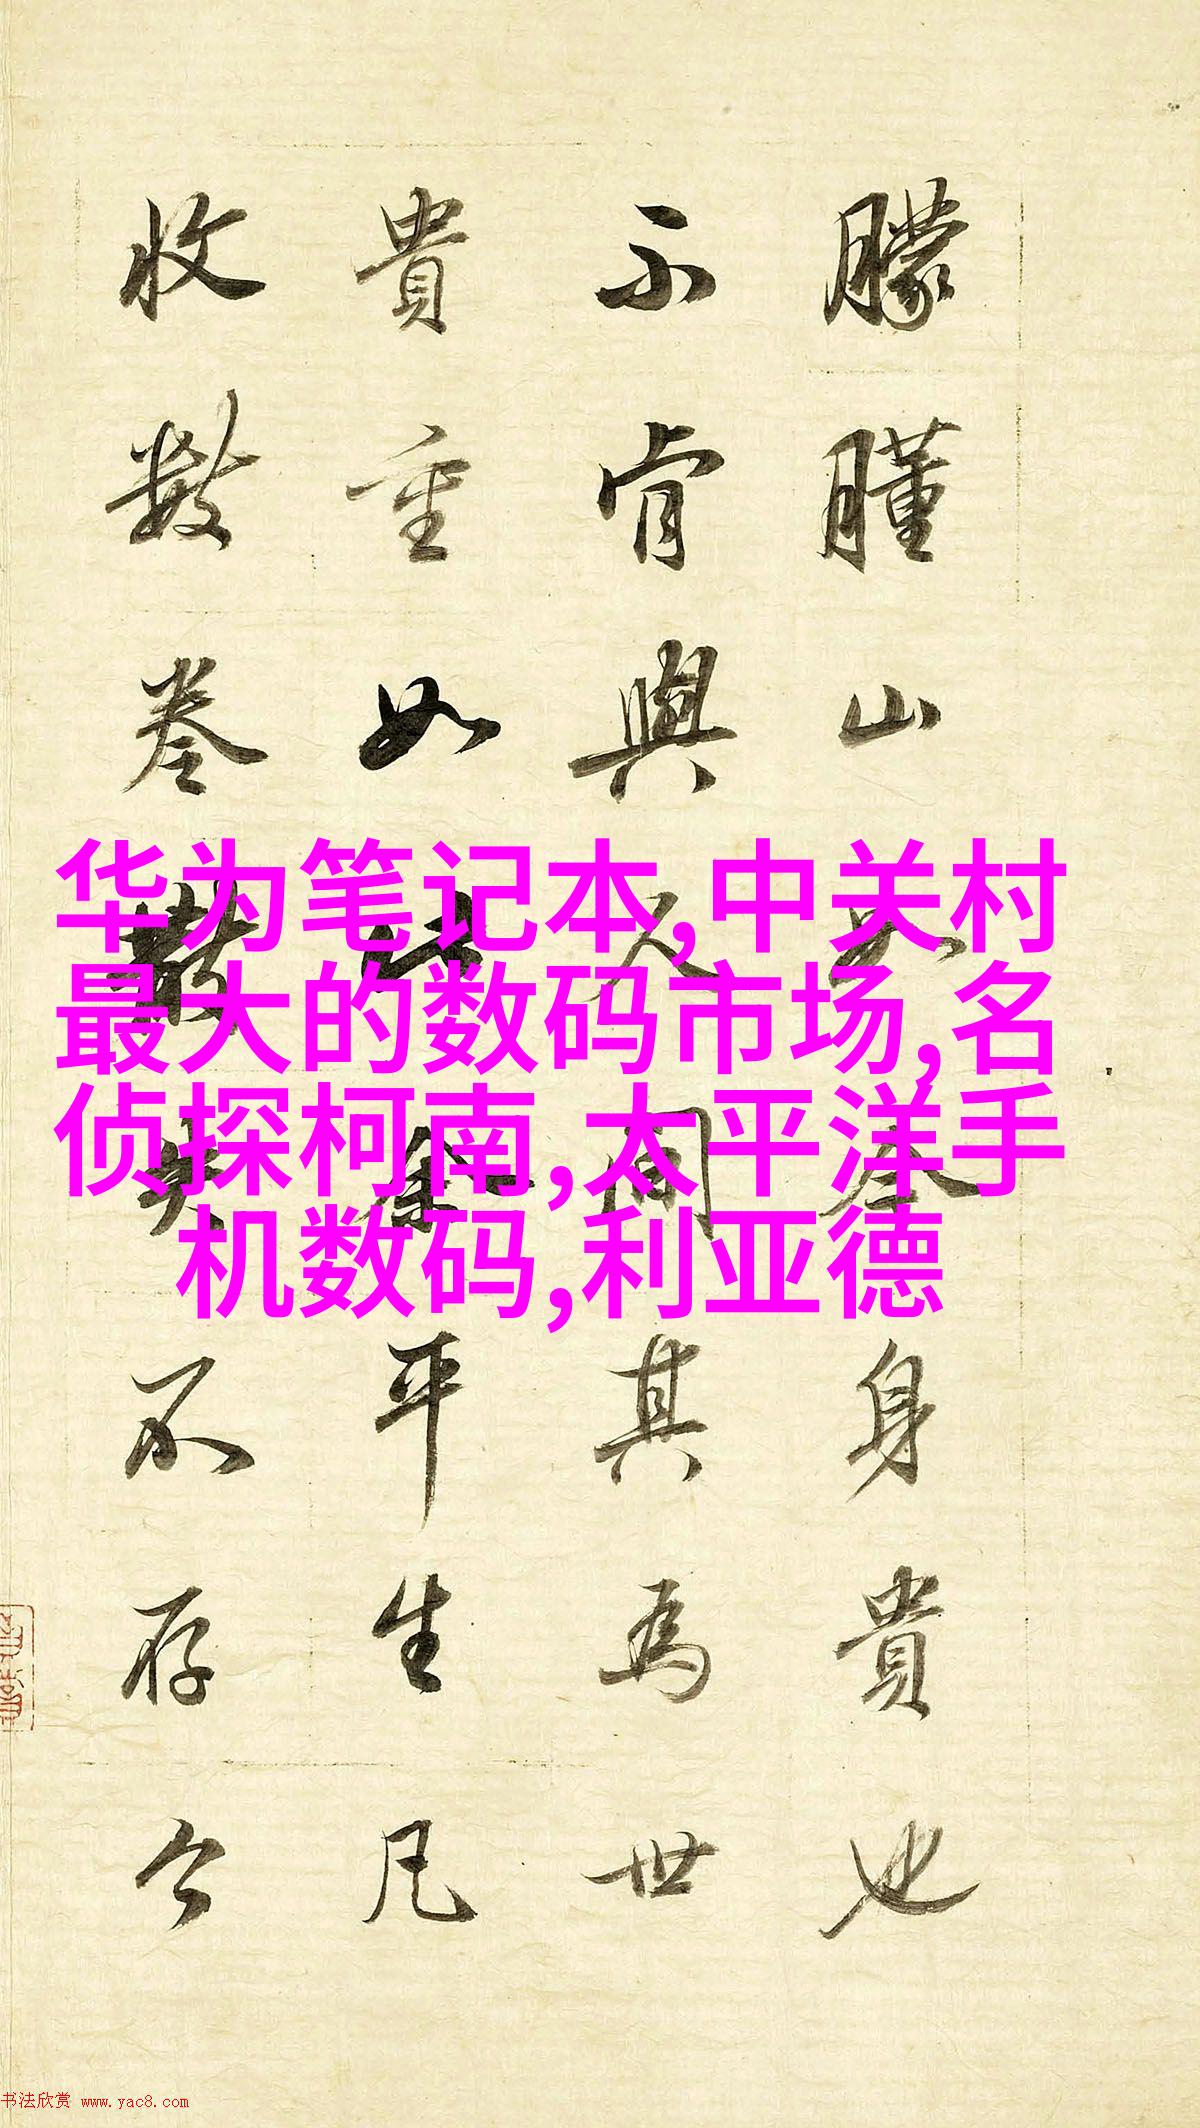 朦朣山人奎身貴也
不肯與人同其為世
貴重如此余平生凡
收數卷散失不存今
华为笔记本,中关村
最大的数码市场,名
侦探柯南,太平洋手
机数码,利亚德
书法欣赏 www.yac8.com